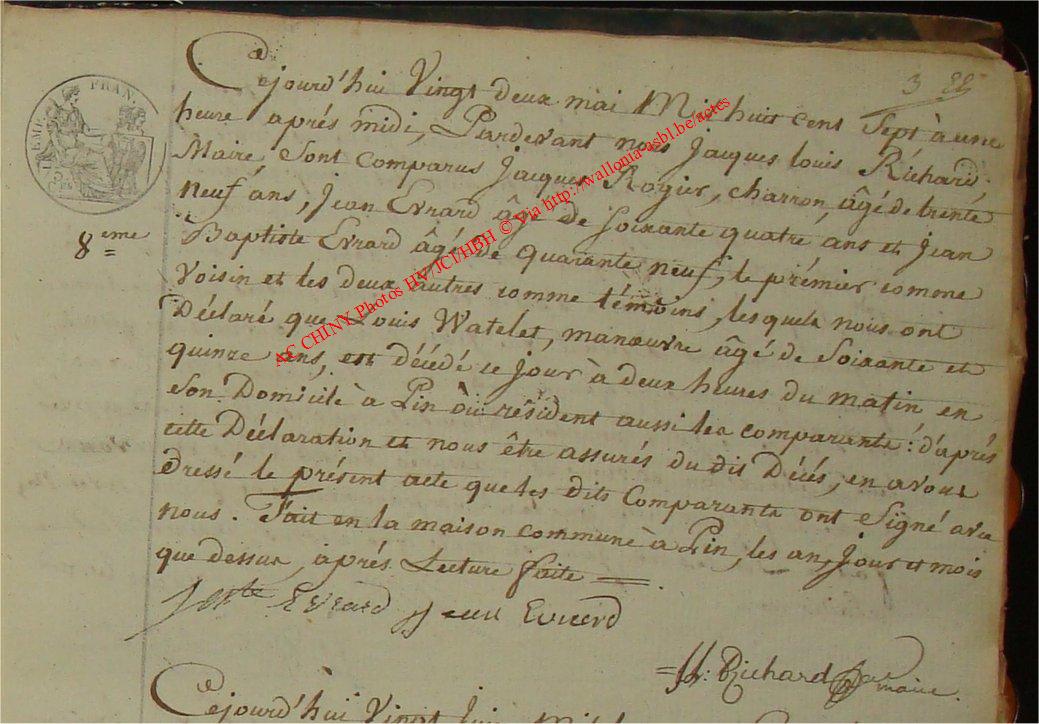 3
Cejourd'hui Vingt deux mai Mil huit cent Sept à une
heure après midi, Pardevant nous Jacques Louis Richard,
Maire Sont comparus Jacques Rogier, charron, âgé de trente
neuf ans, Jean Evrard âgé De Soixante quatre ans et Jean
8eme
Baptiste Evrard âgé De quarante neuf, le prémier comme
Voisin et les deux autres comme témoins, lesquels nous ont
Déclaré que Louis Watelet, manœuvre âgé de Soixante et
quinze ans, est décédé ce jour à deux heures du matin en
son Domicile à Pin où résident aussi les comparants: d'après
cette Déclaration et nous être assurés du dit Décés, en avons
dressé le présent acte que les dits Comparants ont Signé avec
nous. Fait en la maison commune à Pin, les an, Jour et mois
que dessus, après Lecture faite
Evrard Jean Evrard
J.L. Richard
maire
Cejourd'hui Vingt
AC CHINY Photos HV/JCI/HBH © Via http://wallonia-asbl.be/actes
FRAN.